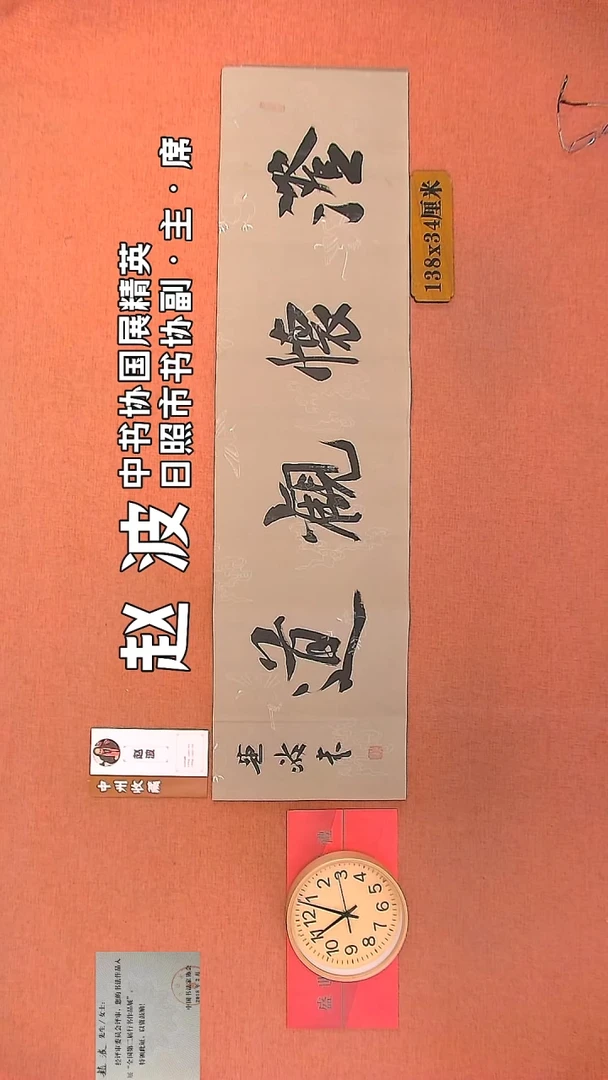 中书协国展精英
赵波 日照市书协副·主·席
澄懷觀道
138x34厘米
赵波
中州收藏
赵波 先生/女士:
经评审委员会评审,您的书法作品入
展“全国第二届行书作品展”,
特颁此证,以资鼓励!
中国书法家协会
盛世
12 1 2 3 4 5 6 7 8 9 10 11